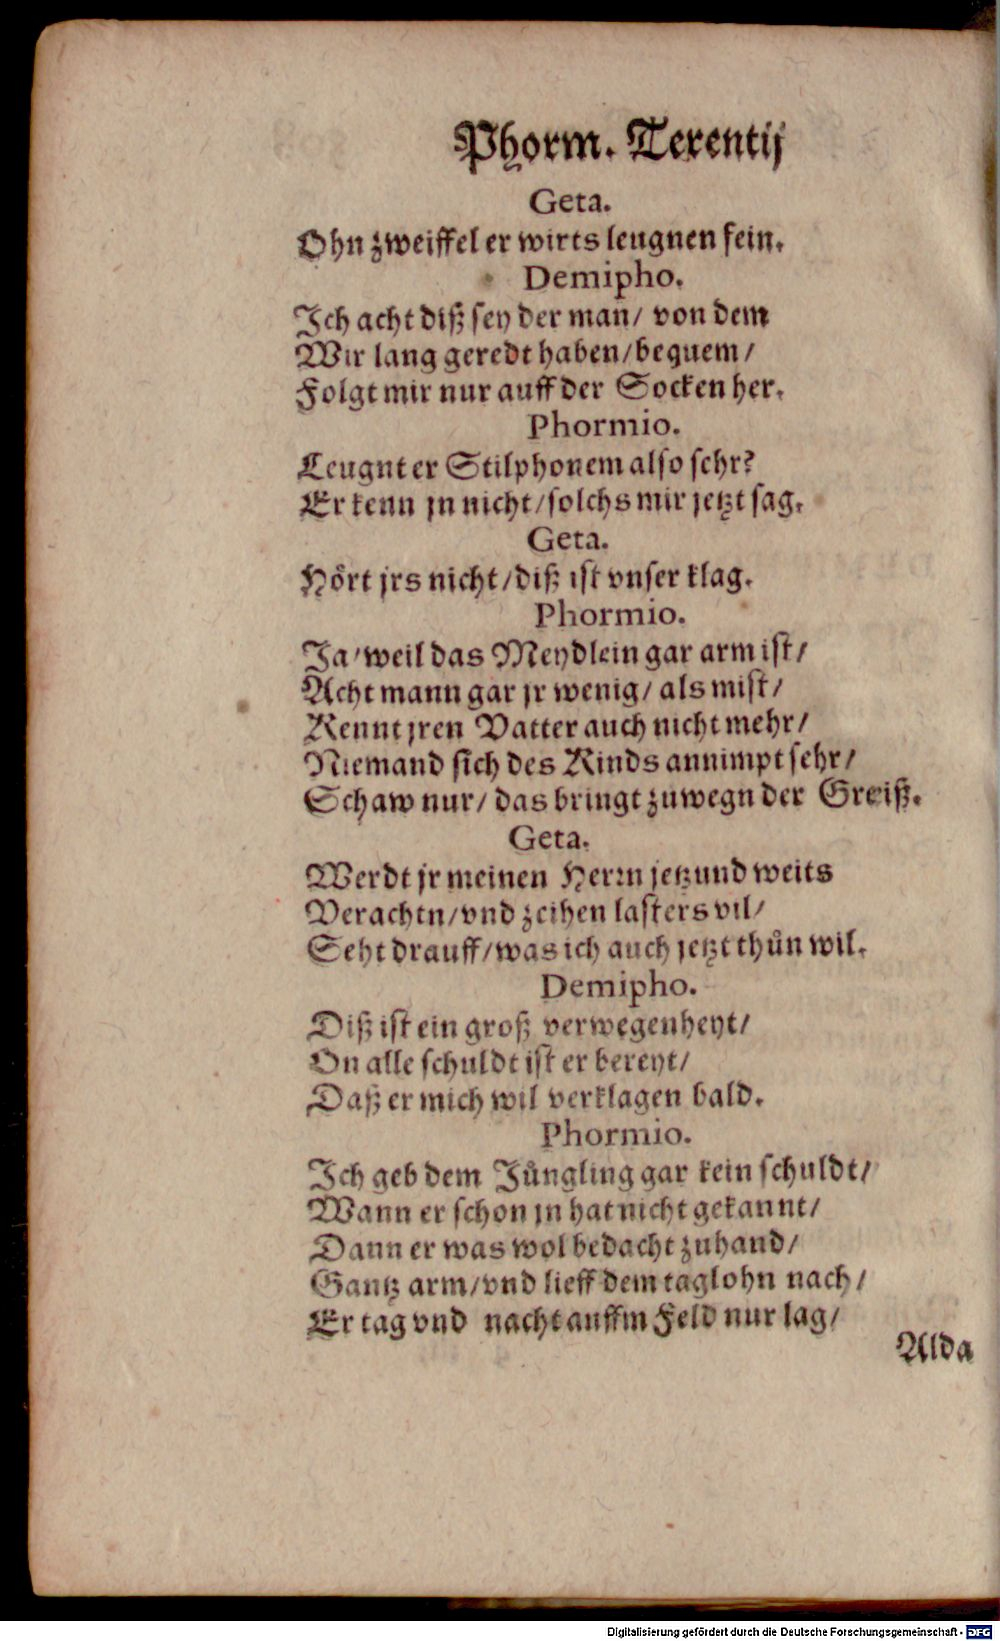 Phorm. Terentij
Geta.
Ohn zweiffel er wirts leugnen fein.
Demipho.
Ich acht diß sey der man/ von dem
Wir lang geredt haben/bequem/
Folgt mir nur auff der Socken her.
Phormio.
Leugnt er Stilphonem also sehr?
Er kenn jn nicht/solchs mir jetzt sag.
Geta.
Hört jrs nicht/diß ist vnser klag.
Phormio.
Ja/weil das Meydlein gar arm ist/
Acht mann gar jr wenig/ als mist/
Kennt jren Vatter auch nicht mehr/
Niemand sich des Kinds annimpt sehr/
Schaw nur/ das bringt zuwegn der Greiß.
Geta.
Werdt jr meinen Herrn jetzund weits
Verachtn/vnd zeihen lasters vil/
Seht drauff/was ich auch jetzt thůn wil.
Demipho.
Diß ist ein groß verwegenheyt/
On alle schuldt ist er bereyt/
Daß er mich wil verklagen bald.
Phormio.
Ich geb dem Jüngling gar kein schuldt/
Wann er schon jn hat nicht gekannt/
Dann er was wol bedacht zuhand/
Gantz arm/vnd lieff dem taglohn nach/
Er tag vnd nacht auffm Feld nur lag/
Alda
Digitalisierung gefördert durch die Deutsche Forschungsgemeinschaft - DFG